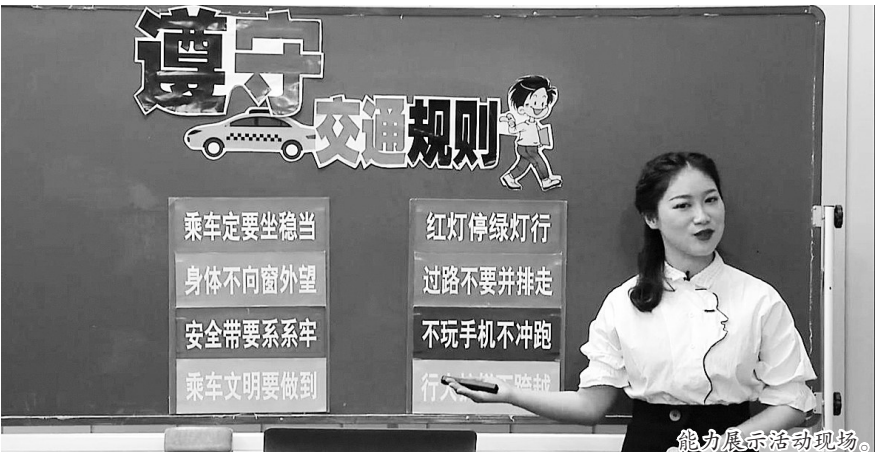 遵守
交通规则
乘车定要坐稳当
身体不向窗外望
安全带要系系牢
乘车文明要做到
红灯停绿灯行
过路不要并排走
不玩手机不冲跑
行跨越
能力展示活动现场。